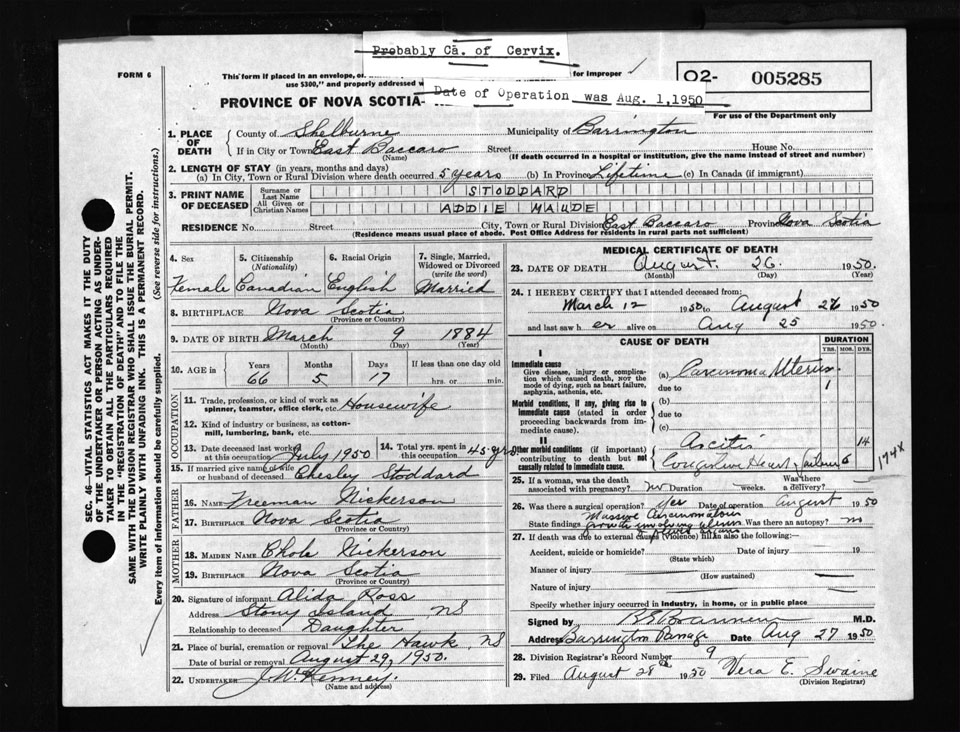 Probably Ca. of Cervix.
FORM 6
This form if placed in an envelope,
for improper
use $300," and properly addressed
Date of Operation was Aug. 1, 1950
O2- 005285
For use of the Department only
PROVINCE OF NOVA SCOTIA
1. PLACE OF DEATH
County of Shelburne Municipality of Barrington
If in City or Town East Baccaro Street House No.
(Name) (If death occurred in a hospital or institution, give the name instead of street and number)
2. LENGTH OF STAY (in years, months and days)
(a) In City, Town or Rural Division where death occurred 5 years (b) In Province Lifetime (c) In Canada (if immigrant)
3. PRINT NAME OF DECEASED
Surname or Last Name STODDARD
All Given or Christian Names ADDIE MAUDE
RESIDENCE No. Street City, Town or Rural Division East Baccaro Province Nova Scotia
(Residence means usual place of abode. Post Office Address for residents in rural parts not sufficient)
4. Sex Female
5. Citizenship (Nationality) Canadian
6. Racial Origin English
7. Single, Married, Widowed or Divorced (write the word) Married
8. BIRTHPLACE Nova Scotia
(Province or Country)
9. DATE OF BIRTH March 9 1884
(Month) (Day) (Year)
10. AGE in Years Months Days If less than one day old
66 5 17 hrs. or min.
OCCUPATION
11. Trade, profession, or kind of work as spinner, teamster, office clerk, etc. Housewife
12. Kind of industry or business, as cotton-mill, lumbering, bank, etc.
13. Date deceased last worked at this occupation July 1950
14. Total yrs. spent in this occupation 45 yrs
15. If married give name of wife or husband of deceased Chesley Stoddard
FATHER
16. NAME Freeman Nickerson
17. BIRTHPLACE Nova Scotia
(Province or Country)
MOTHER
18. MAIDEN NAME Chole Nickerson
19. BIRTHPLACE Nova Scotia
(Province or Country)
20. Signature of informant Alida Ross
Address Stony Island NS
Relationship to deceased Daughter
21. Place of burial, cremation or removal The Hawk, NS
Date of burial or removal August 29, 1950.
22. UNDERTAKER J. W. Kenney.
(Name and address)
MEDICAL CERTIFICATE OF DEATH
23. DATE OF DEATH August 26 1950.
(Month) (Day) (Year)
24. I HEREBY CERTIFY that I attended deceased from:
March 12 1950 to August 26 1950
and last saw her alive on Aug 25 1950.
CAUSE OF DEATH
DURATION
YRS. MOS. DYS.
I
Immediate cause
Give disease, injury or complication which caused death, not the mode of dying, such as heart failure, asphyxia, asthenia, etc.
(a) Carcinoma Uterus
due to 1
Morbid conditions, if any, giving rise to immediate cause (stated in order proceeding backwards from immediate cause).
(b)
due to
(c)
II
Other morbid conditions (if important) contributing to death but not causally related to immediate cause.
Ascitis 14
Congestive Heart Failure 6
174X
25. If a woman, was the death associated with pregnancy? no Duration weeks. Was there a delivery?
26. Was there a surgical operation? Yes Date of operation August 1950
State findings Massive Carcinomatous growth involving uterus Was there an autopsy? no
27. If death was due to external causes (violence) fill in also the following:
Accident, suicide or homicide? Date of injury 19
(State which)
Manner of injury
(How sustained)
Nature of injury
Specify whether injury occurred in industry, in home, or in public place
Signed by M.D.
Address Barrington Passage Date Aug 27 1950
28. Division Registrar's Record Number 9
29. Filed August 28th 1950 Vera E. Swaine
(Division Registrar)
SEC. 46—VITAL STATISTICS ACT MAKES IT THE DUTY
OF THE UNDERTAKER OR PERSON ACTING AS UNDER-
TAKER TO OBTAIN ALL THE PARTICULARS REQUIRED
IN THE "REGISTRATION OF DEATH" AND TO FILE THE
SAME WITH THE DIVISION REGISTRAR WHO SHALL ISSUE THE BURIAL PERMIT.
WRITE PLAINLY WITH UNFADING INK. THIS IS A PERMANENT RECORD.
Every item of information should be carefully supplied. (See reverse side for instructions.)